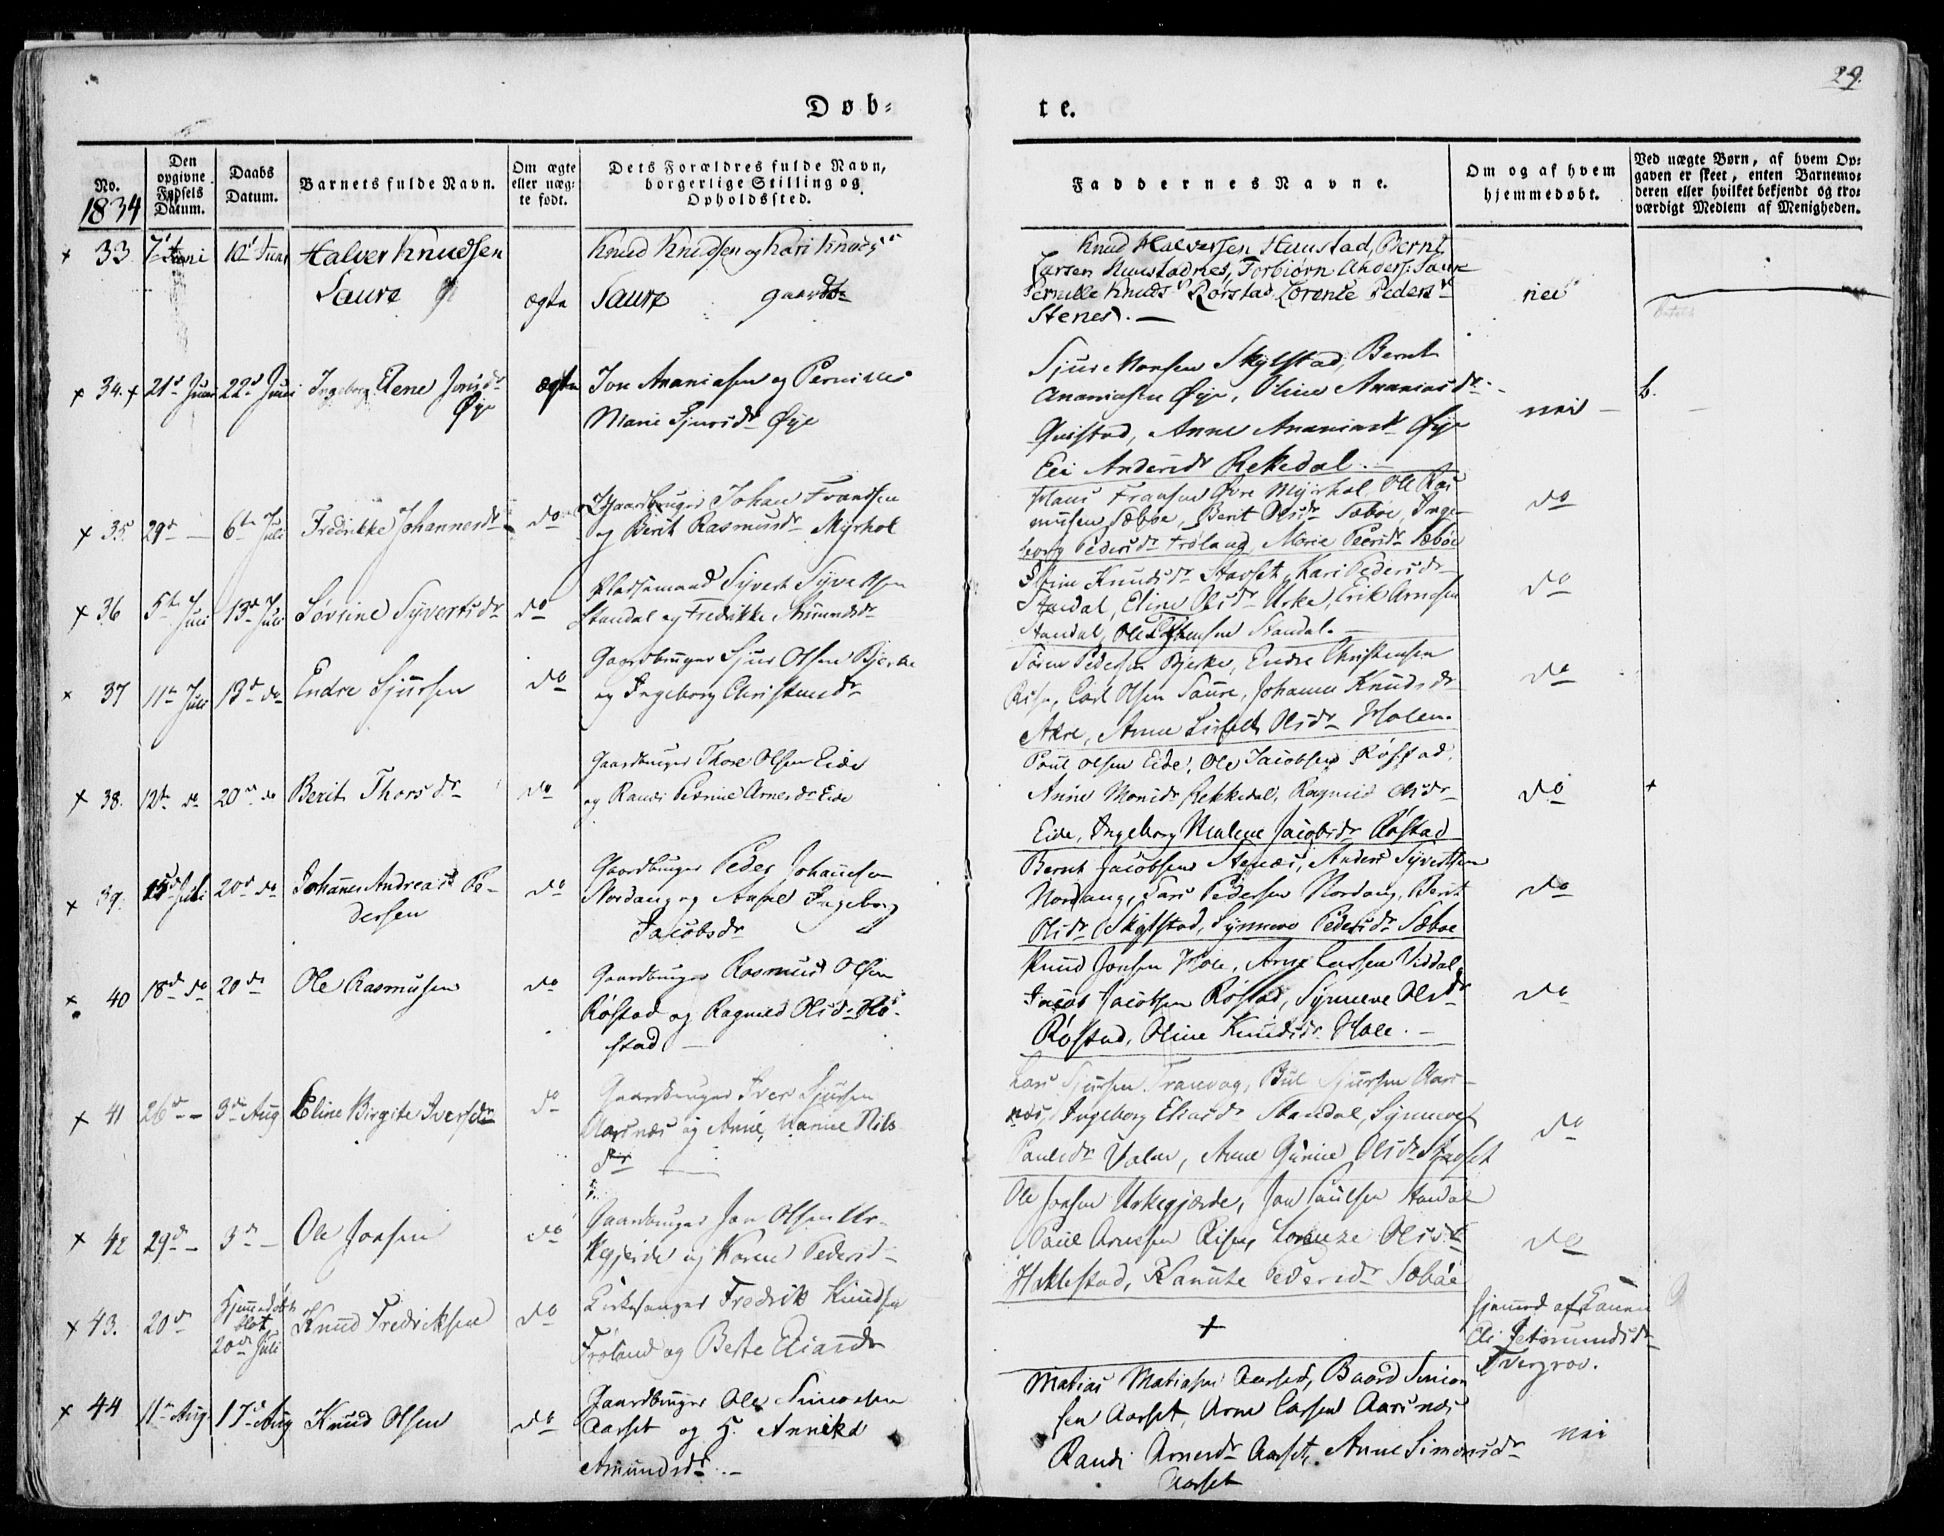 29.
Døb-
te.
No.
1834
Den
opgivne
Fødsels
Datum.
Daabs
Datum.
Barnets fulde Navn.
Om ægte
eller uæg-
te født.
Dets Forældres fulde Navn,
borgerlige Stilling og
Opholdssted.
Faddernes Navne.
Om og af hvem
hjemmedøbt.
Ved uægte Børn, af hvem Op-
gaven er skeet, enten Barnemo-
deren eller hvilket bekjendt og tro-
værdigt Medlem af Menigheden.
33 7 Juni Halver Knudsen
Saure
ægte
Knud Knudsen og Kari Knuds
Saure
Knud Halversen Hunstad, Bernt
Larsen Torbiørn Anders: Saure
Pernille Knuds Rørstad, Lorentse Peders
Stenes. —
nei
34. 21d Juni 22d Juni Ingeborg Elene Jonsdr
Øye
ægte
Jon Ananiasen og Pernille
Marie Sjursdr Øye
Sjur Monsen Skylstad, Bernt
Ananiasen Øye, Oline Ananiasdr
Anne Ananiasdr Øye
Eli Andersdr Rekkedal. —
nei
b.
35 29d — 6te Juli Fredrikke Johannesdr do
Gaardbruger Johan Frandsen
og Berit Rasmusdr Myrhol
Hans Fransen Øvre Myrhol Ole Ras
musen Sæbøe, Berit Olsdr Sæbøe, Inge-
borg Pedersdr Frøland, Marie Peersdr Sæbøe
do
36 5te Juli 13d Juli Søvrine Syvertsdr do
Pladsemand Syvert Syvertsen
Standal og Fredrikke Amundsdr
Knudsdr Stavset, Kari Pedersdr
Standal, Eline Olsdr Urke, Erik Arnesen
Standal, Ole Standal. —
do
37 11te Juli 13d do Endre Sjursen do
Gaardbruger Sjur Olsen Bjerke
og Ingeborg Christensdr
Søren Pedersen Bjerke, Endre Christensen
Rise, Carl Olsen Saure, Johanne Knudsdr
Akre, Anne Lisbeth Olsdr Holen.
do
38. 12te do 20de do Berit Thorsdr do
Gaardbruger Thore Olsen Eide
og Randi Pernine Arnesdr Eide
Poul Olsen Eide, Ole Jacobsen Røstad,
Anne Monsdr Rekkedal, Ragnild Olsdr
Eide, Ingeborg Malene Jacobsdr Røstad
do
39. 15de Juli 20d do Johannes Andreas Pe-
dersen
do
Gaardbruger Peder Johannesen
Nordang og Anne Ingeborg
Jacobsdr
Bernt Jacobsen Stenæs, Anders Syvertsen
Nordang, Lars Pedersen Nordang, Berit
Olsdr Skylstad, Synneve Pedersdr Sæbøe
do
40 18d do 20 do Ole Rasmusen do
Gaardbruger Rasmus Olsen
Røstad og Ragnild Olsdr Rø-
stad —
Knud Jonsen Hole, Arne Larsen Viddal,
Jacob Jacobsen Røstad, Synneve Olsdr
Røstad, Oline Knudsdr Hole. —
do
41 26d — 3d Aug Eline Birgite Iversdr do
Gaardbruger Iver Sjursen
Aarsnæs og Anne Marie Nils
dr —
Lars Sjursen Tranvag, Sjursen Aars-
næs, Ingeborg Eliasdr Standal, Synneve
Paulsdr Valen, Anne Gurine Olsdr Stavset
do
42 29d — 3d — Ole Jonsen do
Gaardbruger Jon Olsen Ur-
kegjerde og Karen Pedersd
Ole Jonsen Urkegjærde, Jon Paulsen Standal
Paul Arnesen Risen, Lorentze Olsdr
Haklestad, Pedersdr Sæbøe
do
43. 20d Hjemmedøbt
20de Juli
Knud Fredriksen do
Kirkesanger Fredrik Knudsen
Frøland og Berte Eliasdr
+
hjemmed af Konen
Eli Tvergrov.
44 11te Aug 17d Aug Knud Olsen do
Gaardbruger Ole Simonsen
Aarset og H. Annika
Amundsdr. —
Matias Matiasen Aarset, Baard Simon
sen Aarset, Arne Larsen Aarsnæs
Randi Arnesdr Aarset, Anne Simonsdr
Aarset
nei